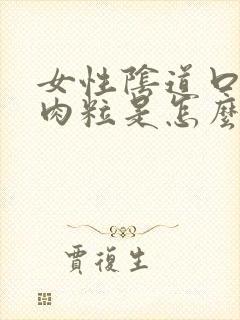 女性陰道口
肉粒是怎麼
賈復生